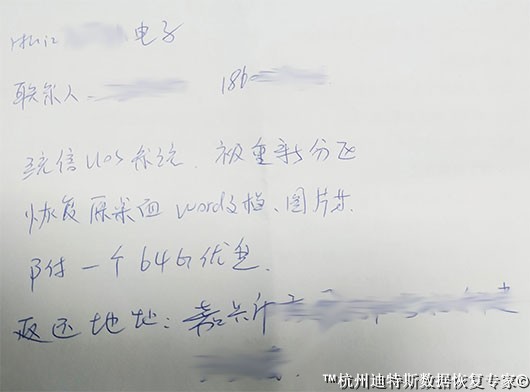 浙江 电子
联系人 186
统信UOS系统、被重新分区
恢复原桌面 word文档、图片等
附付一个64G优盘.
返还地址：嘉兴市
™杭州迪特斯数据恢复专家©